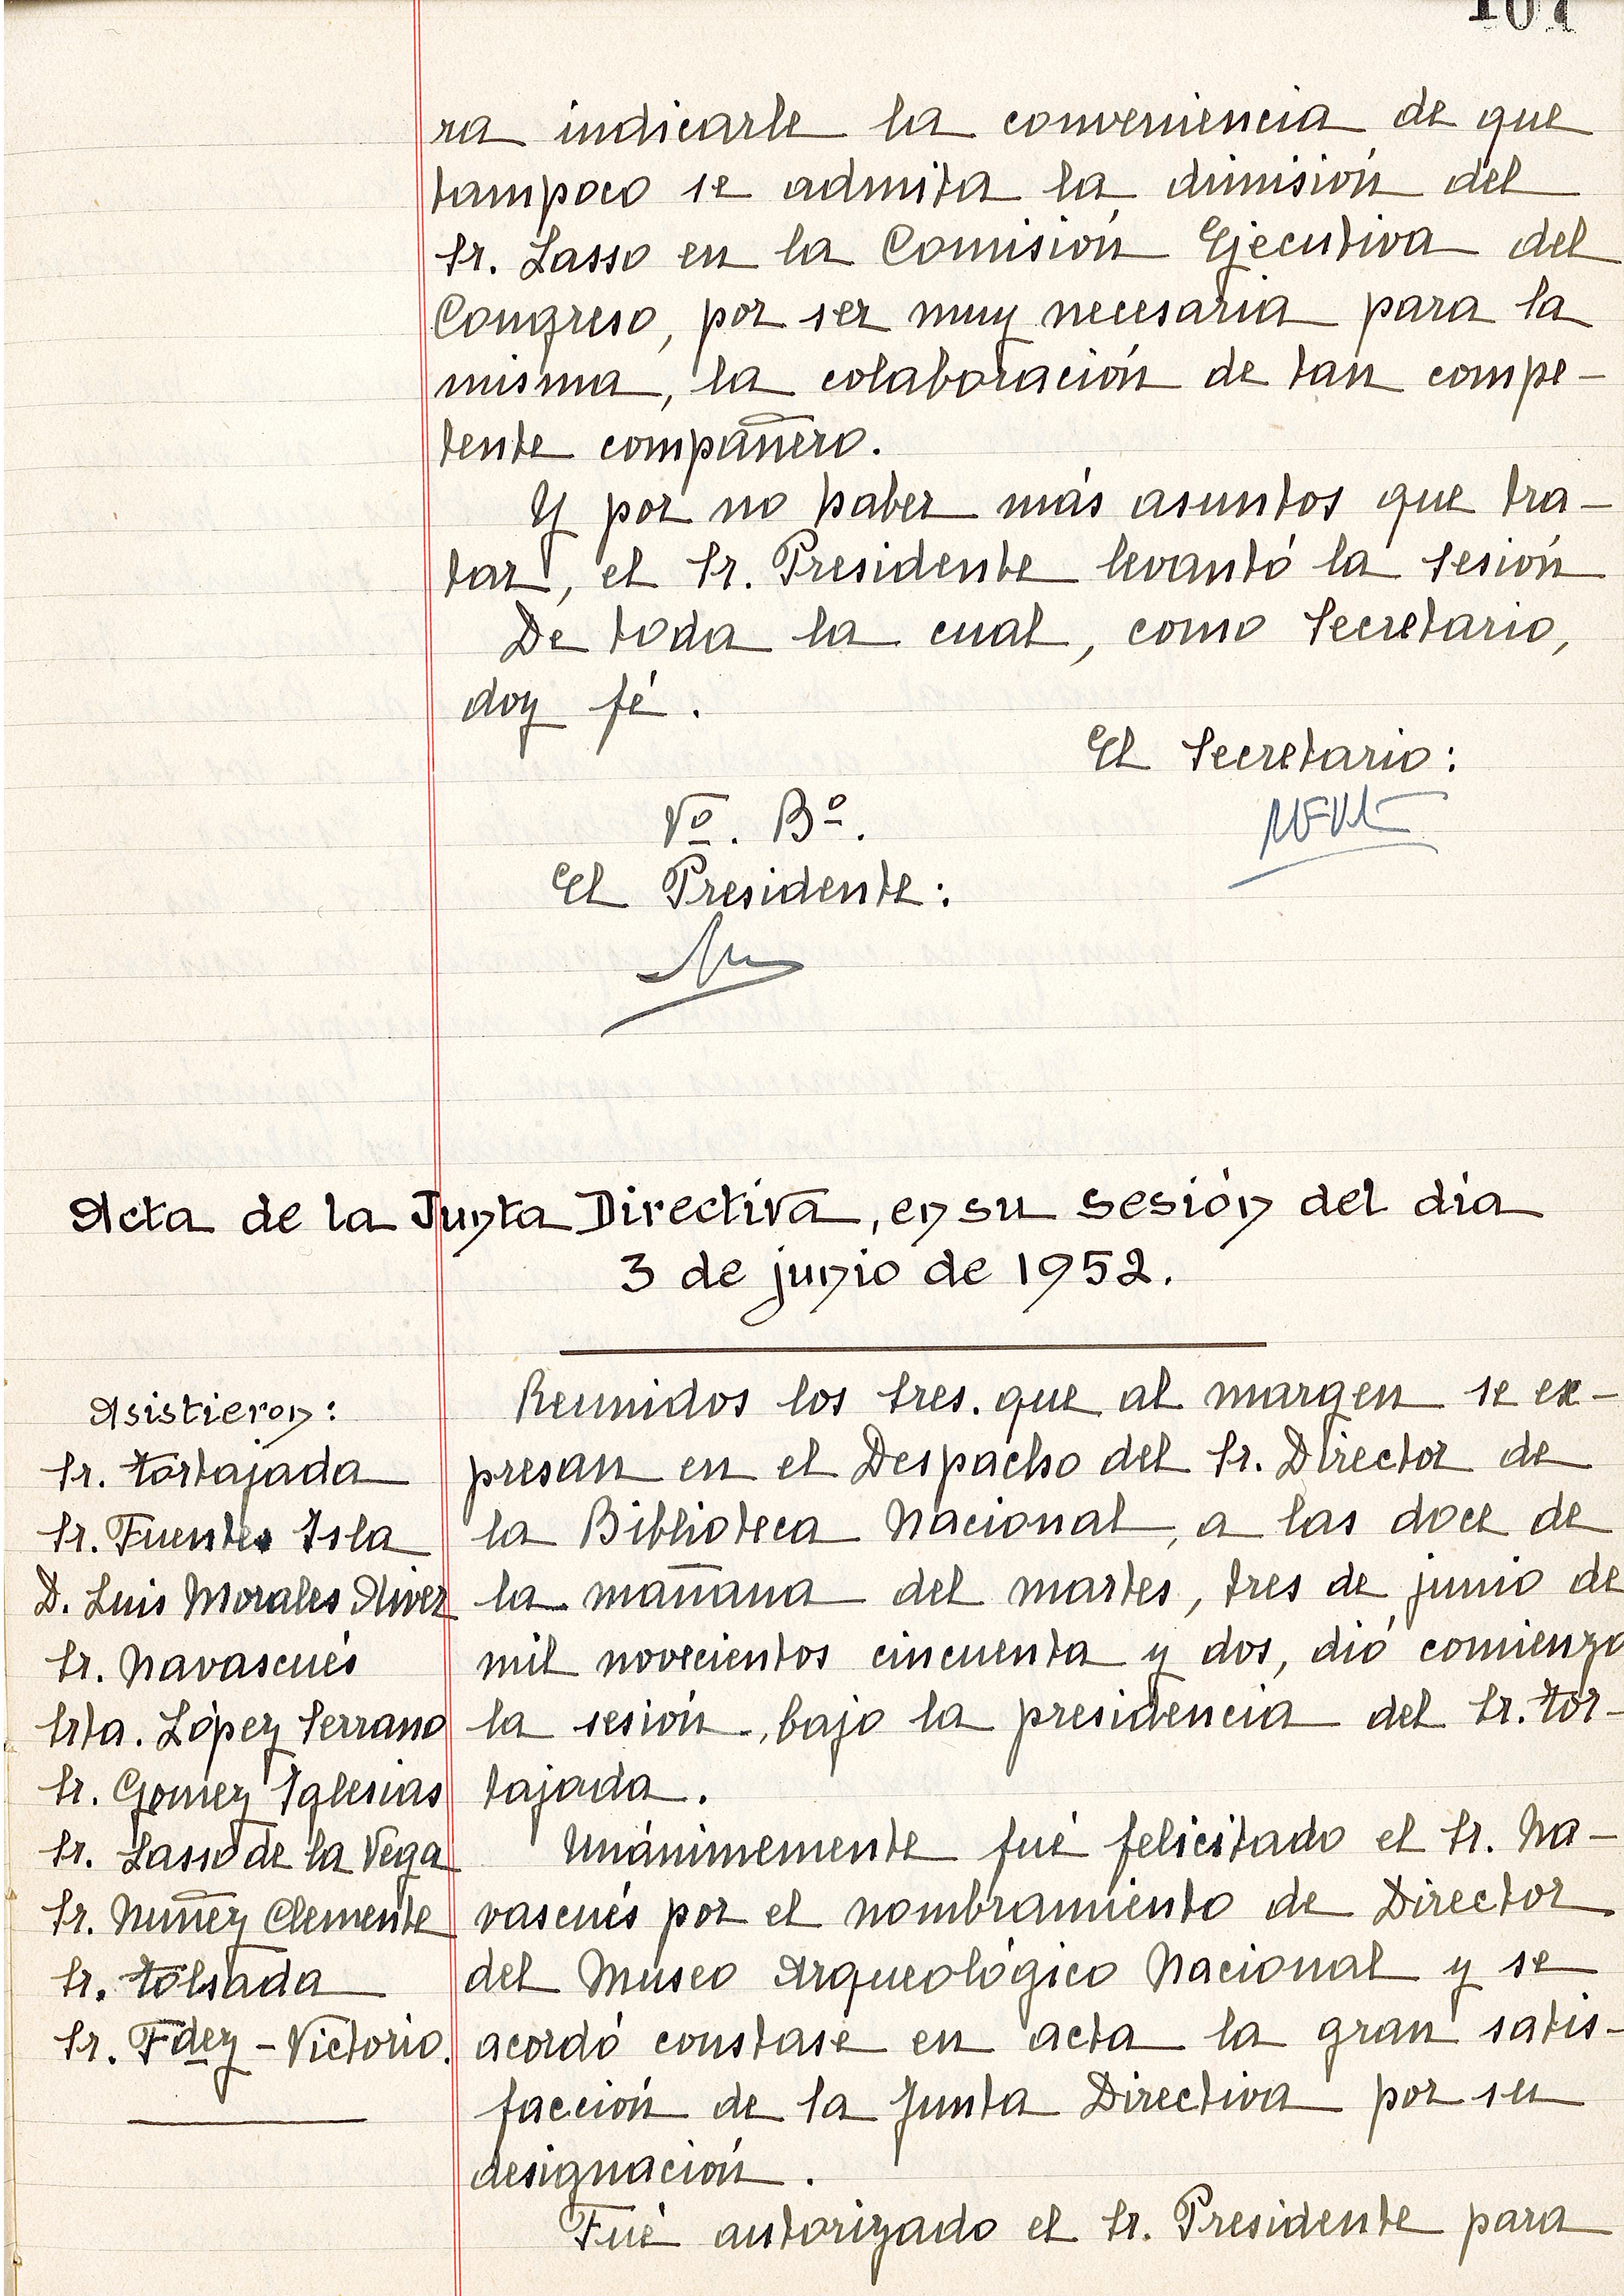 ra indicarle la conveniencia de que
tampoco se admita la dimisión del
Sr. Lasso en la Comisión Ejecutiva del
Congreso, por ser muy necesaria para la
misma, la colaboración de tan compe-
tente compañero.
Y por no haber más asuntos que tra-
tar, el Sr. Presidente levantó la sesión
De todo lo cual, como Secretario,
doy fé.
El Secretario:
Vº. Bº.
El Presidente:
Acta de la Junta Directiva, en su sesión del día
3 de junio de 1952.
Asistieron:
Sr. Tortajada
Sr. Fuentes Isla
D. Luis Morales Oliver
Sr. Navascués
Srta. López Serrano
Sr. Gomez Iglesias
Sr. Lasso de la Vega
Sr. Nuñez Clemente
Sr. Tolsada
Sr. Fdez - Victorio.
Reunidos los Sres. que al margen se ex-
presan en el Despacho del Sr. Director de
la Biblioteca Nacional, a las doce de
la mañana del martes, tres de junio de
mil novecientos cincuenta y dos, dió comienzo
la sesión, bajo la presidencia del Sr. Tor-
tajada.
Unánimemente fué felicitado el Sr. Na-
vascués por el nombramiento de Director
del Museo Arqueológico Nacional y se
acordó constase en acta la gran satis-
facción de la Junta Directiva por su
designación.
Fué autorizado el Sr. Presidente para